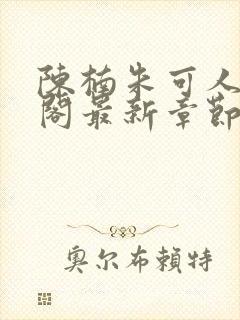 陳楠朱可人
閣最新章節
奧尔布賴特